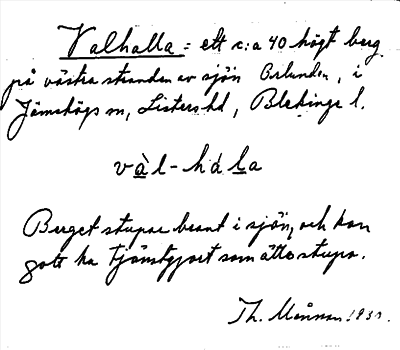 Valhalla = ett c:a 40 högt berg
på västra stranden av sjön Orlunden, i
Jämshögs sn, Listers hd, Blekinge l.
val-håla
Berget stupar brant i sjön, och kan
gott ha tjänstgjort som ättestupa.
Th. Månsson 193